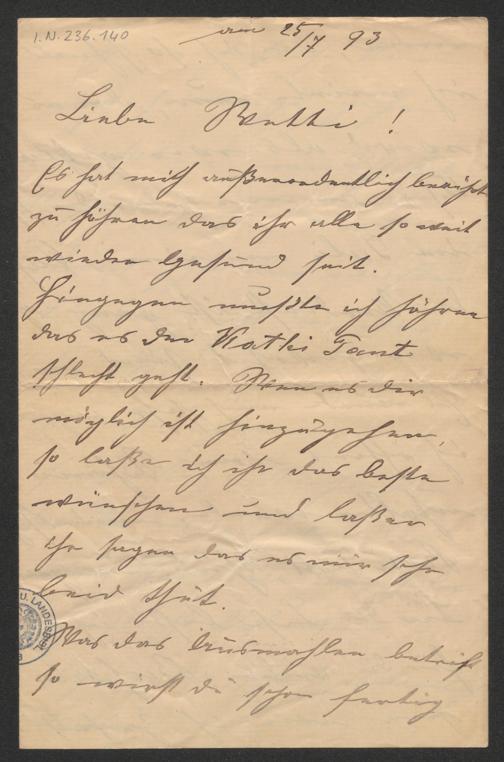 I.N. 236.140
am 25/7 93
Liebe Wetti!
Es hat mich außerordentlich berührt
zu höhren das ihr alle so weit
wieder Gesund seit.
Hingegen mußte ich höhren
das es der Kathi Tant
schlecht geht. Wen es dir
möglich ist hinzugehen,
so laße ich ihr das beste
wünschen und laßer
ihr sagen das es mir sehr
leid thut.
Was das Ausmahlen betrift
so wirst du schon fertig
U. LANDESBIBL